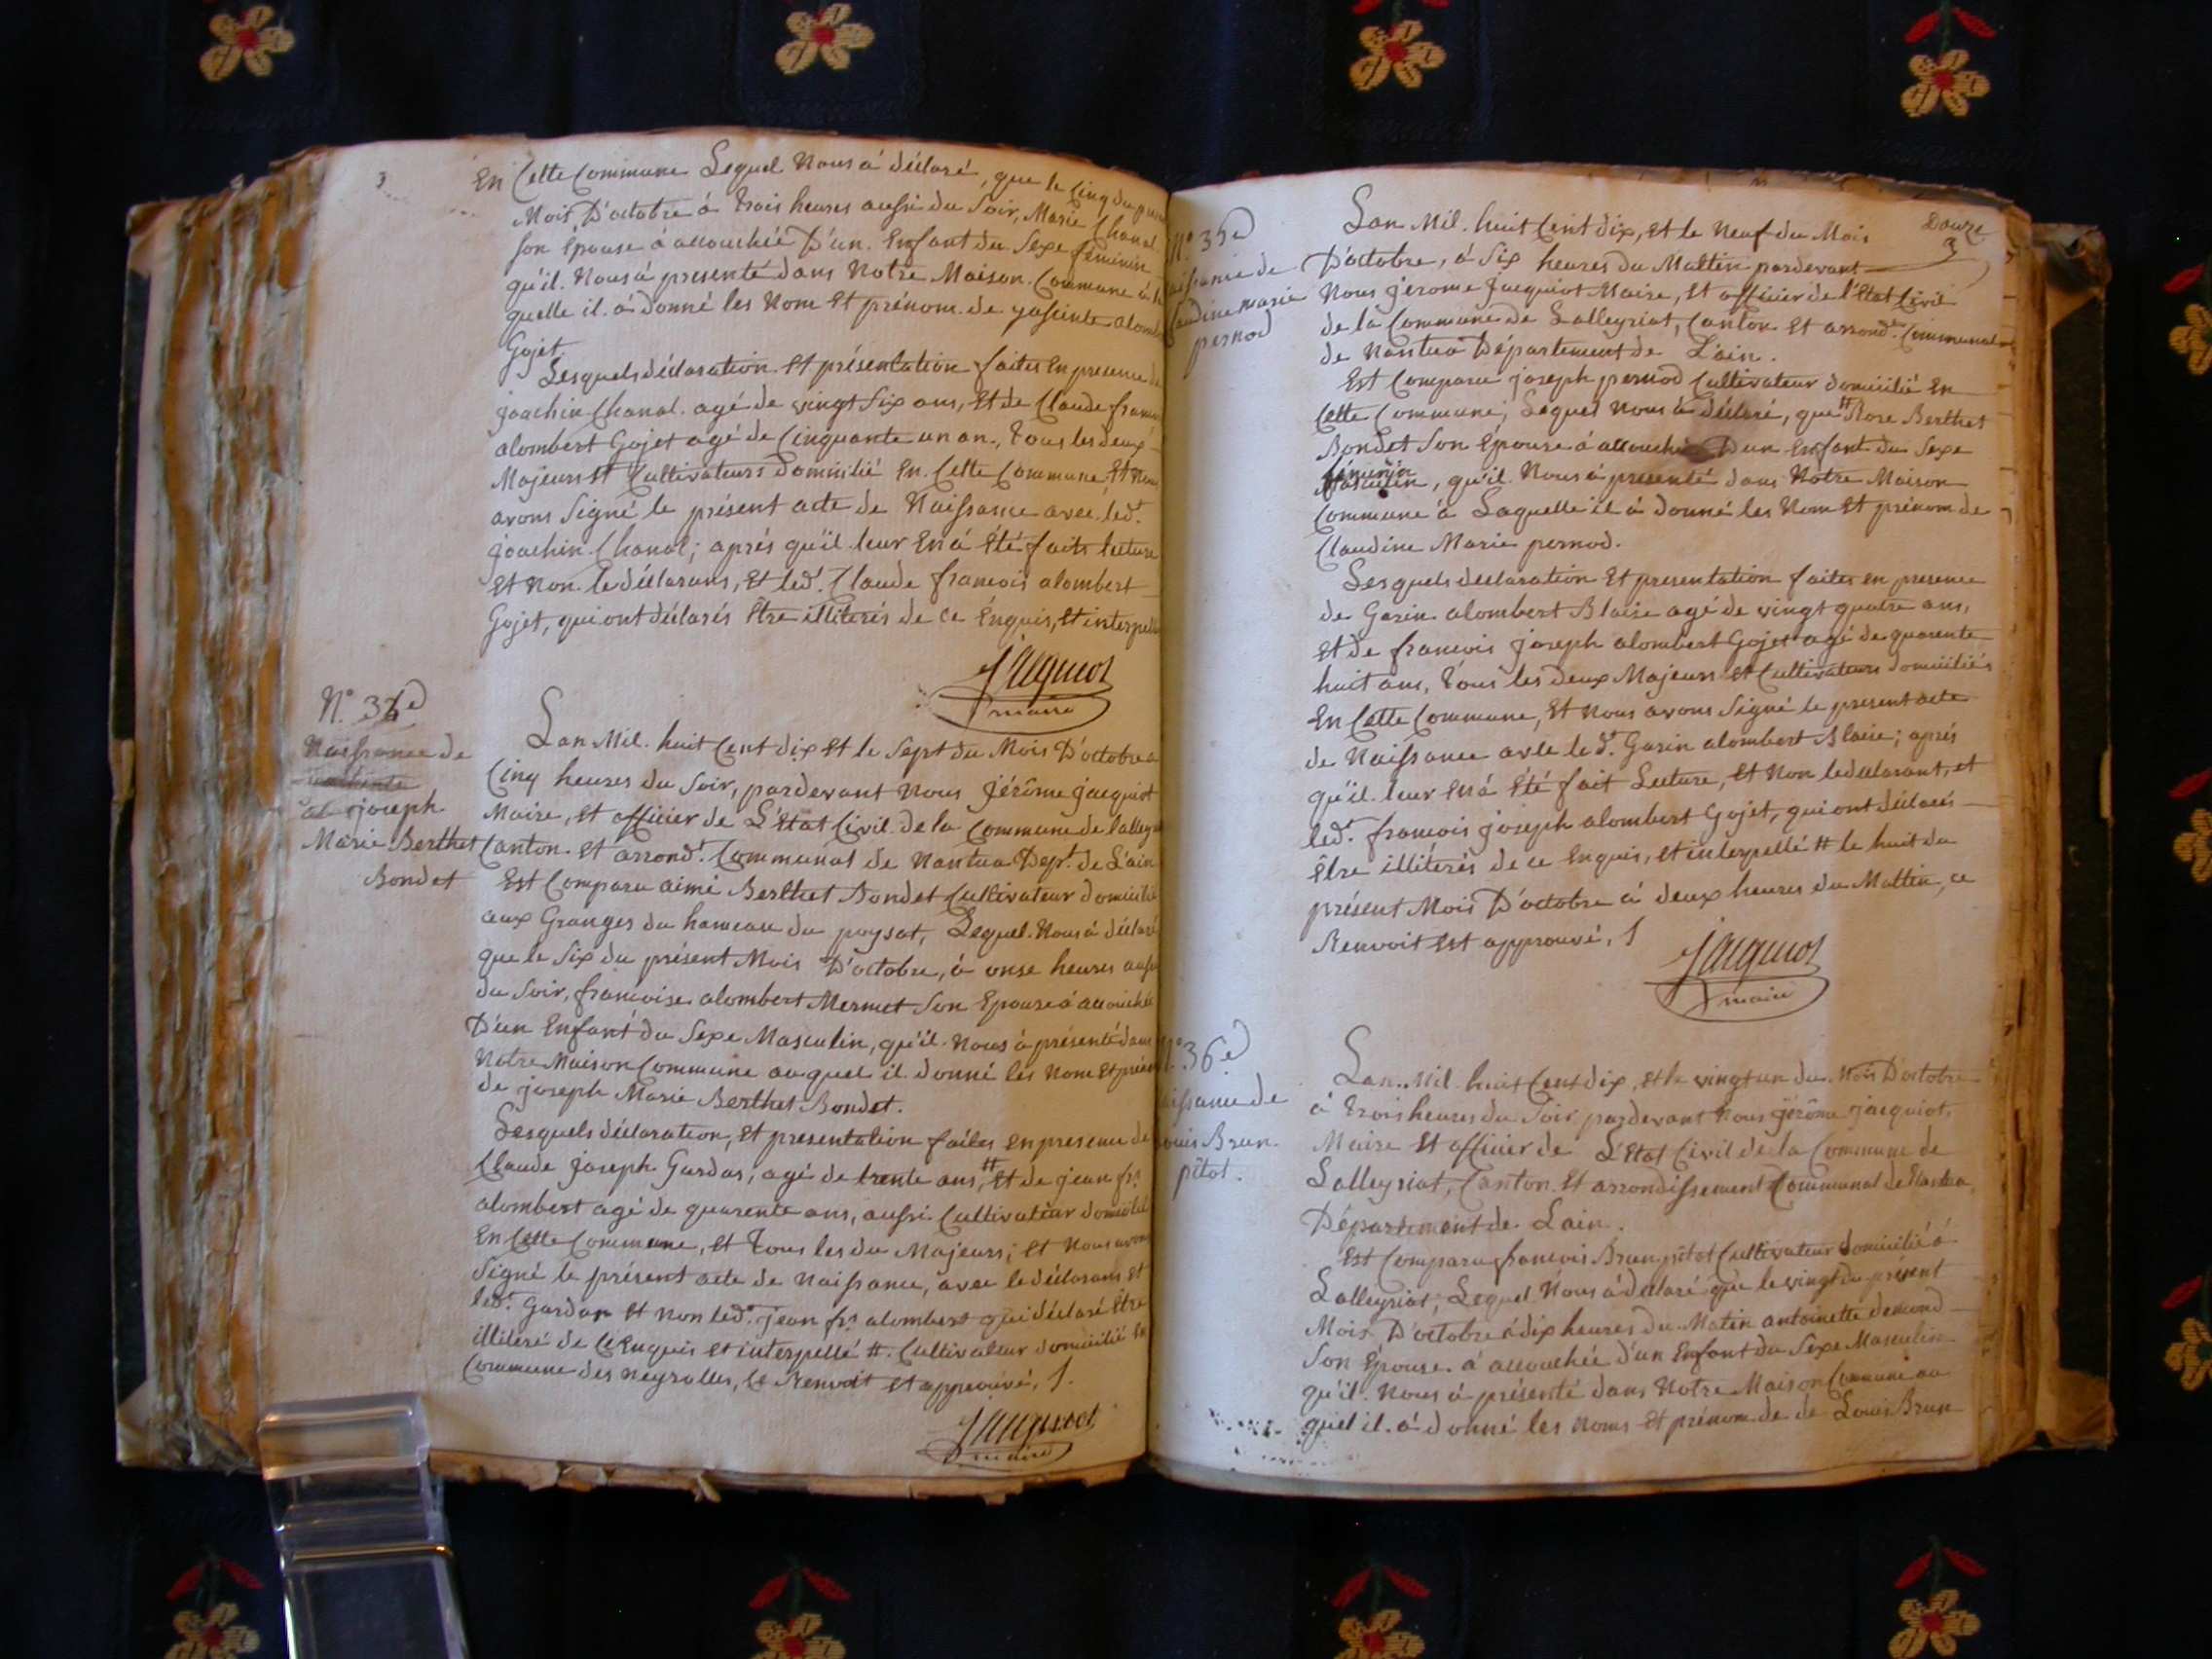 3
En Cette Commune Lequel Nous à déclaré, que le Cinq du
Mois D'octobre à trois heures aussi du Soir, Marie Chanal
son Epouse à accouchée D'un Enfant du Sexe féminin
qu'il Nous à presenté dans Notre Maison Commune à la
quelle il à donné les Nom Et prénom de yasinte alombert
Gojet
Lesquels déclaration Et présentation faites En presence de
joachin Chanal agé de vingt Six ans, Et de Claude francois
alombert Gojet agé de Cinquante un an, tous les deux
Majeurs Et Cultivateurs domicilié En Cette Commune, Et Nous
avons Signé le présent acte de Naissance avec led.t
joachin Chanal; aprés qu'il leur En à Eté faits lecture
Et Non le déclarans, Et led.t Claude francois alombert
Gojet, qui ont déclarés Être illiterés de ce Enquis, Et interpellé
Jacquiot
maire
N.o 34e
Naissance de
joseph
Marie Berthet
Bondet
Lan Mil huit Cent dix Et le Sept du Mois D'octobre a
Cinq heures du Soir, pardevant Nous jérôme jacquiot
Maire, Et officier de L'Etat Civil de la Commune de lalleyriat
Canton Et arrond.t Communal de Nantua Dep.t de L'ain
Est Comparu aimé Berthet Bondet Cultivateur domicilié
aux Granges du hameau du poysat, Lequel Nous à déclaré
que le Six du présent Mois D'octobre, à onse heures aussi
du Soir, francoise alombert Mermet Son Epouse à accouchée
D'un Enfant du Sexe Masculin, qu'il Nous à présenté dans
Notre Maison Commune auquel il donné les Nom Et prénom
de joseph Marie Berthet Bondet.
Lesquels déclaration, Et presentation faites en presence de
Claude joseph Gardas, agé de trente ans, # Et de jean fr.s
alombert agé de quarente ans, aussi Cultivateur domicilié
En Cette Commune, Et tous les du Majeurs; Et Nous avons
Signé le présent acte de Naissance, avec le déclarans et
led.t Gardas Et Non led.t jean fr.s alombert qui déclaré Être
illiteré de Ce Enquis et interpellé #. Cultivateur domicilié En
Commune des Neyrolles, Ce Renvoit Et approuvé, J.
Jacquiot
maire
Douze
3
N.o 35e
aissance de
audine marie
pernod
Lan Mil huit Cent dix, Et le Neuf du Mois
D'octobre, à Six heures du Mattin pardevant
Nous jérome jacquiot Maire, Et officier de l'Etat Civil
de la Commune de Lalleyriat, Canton Et arrond.t Communal
de Nantua Département de L'ain.
Est Comparu joseph pernod Cultivateur domicilié En
Cette Commune, Lequel Nous à déclaré, que # Rose Berthet
Bondet Son Epouse à accouchée D'un Enfant du Sexe
féminin
Masculin, qu'il Nous à presenté dans Notre Maison
Commune à Laquelle il à donné les Nom Et prénom de
Claudine Marie pernod.
Lesquels declaration Et presentation faites en presence
de Garin alombert Blaise agé de vingt quatre ans,
et de francois joseph alombert Gojet agé de quarente
huit ans, tous les deux Majeurs Et Cultivateurs domiciliés
En Cette Commune, Et Nous avons Signé le present acte
de Naissance avec le d.t Garin alombert Blaise; aprés
qu'il leur En à Eté fait Lecture, Et Non le declarant, et
led.t francois joseph alombert Gojet, qui ont déclarés
Être illiterés de ce Enquis, Et interpellé # le huit du
présent Mois D'octobre à deux heures du Mattin, ce
Renvoit Est approuvé, J
Jacquiot
maire
N.o 36e
aissance de
ouis Brun
pitot.
Lan Mil huit Cent dix, Et le vingt un du Mois D'octobre
à trois heures du Soir pardevant Nous jérôme jacquiot,
Maire Et officier de L'Etat Civil de la Commune de
Lalleyriat, Canton Et arrondissement Communal de Nantua
Département de Lain.
Est Comparu francois Brun pitot Cultivateur domicilié à
Lalleyriat, Lequel Nous à déclaré que le vingt du present
Mois D'octobre à dix heures du Matin antoinette demond
Son Epouse à accouchée d'un Enfant du Sexe Masculin
qu'il Nous à présenté dans Notre Maison Commune au
quel il à donné les Noms Et prénom de de Louis Brun